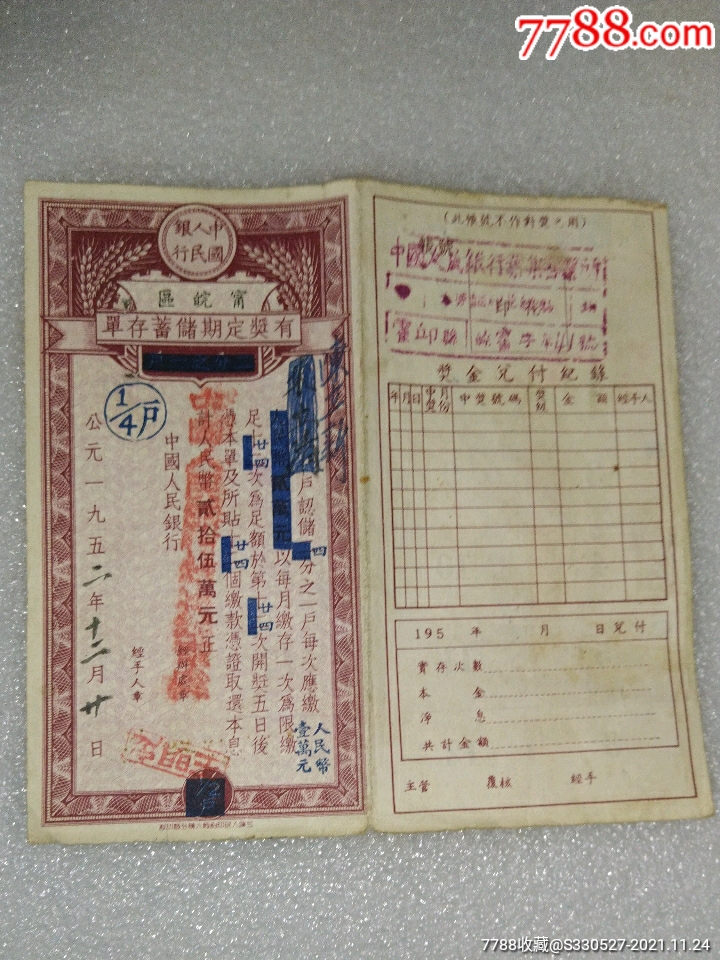 7788.com
中國人民銀行
甯皖區
有獎定期儲蓄存單
1/4戶
戶認儲四分之一戶每次應繳
人民幣壹萬元
以每月繳存一次為限繳
足廿四次為足額於第廿四次開獎五日後
憑本單及所貼廿四個繳款憑證取還本息
計人民幣貳拾伍萬元正
中國人民銀行
經辦處章
經手人章
公元一九五二年十二月廿日
(此帳號不作對獎之用)
帳號
靈卬縣
獎金兌付紀錄
年 月 日 中獎月份 中獎號碼 獎級 金額 經手人
195 年 月 日兌付
實存次數
本金
淨息
共計金額
主管 覆核 經手
7788收藏@S330527-2021.11.24